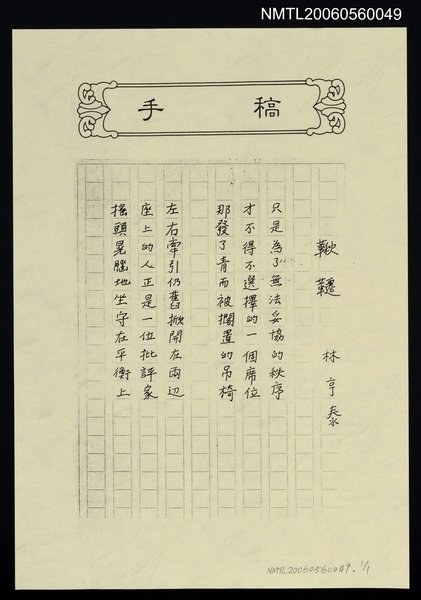 NMTL20060560049
手稿
鞦韆
林亨泰
只是為了無法妥協的秩序
才不得不選擇的一個席位
那發了青而被擱置的吊椅
左右牽引仍舊掀開在兩边
座上的人正是一位批評家
搖頭晃腦地坐守在平衡上
NMTL20060560049. 1/1